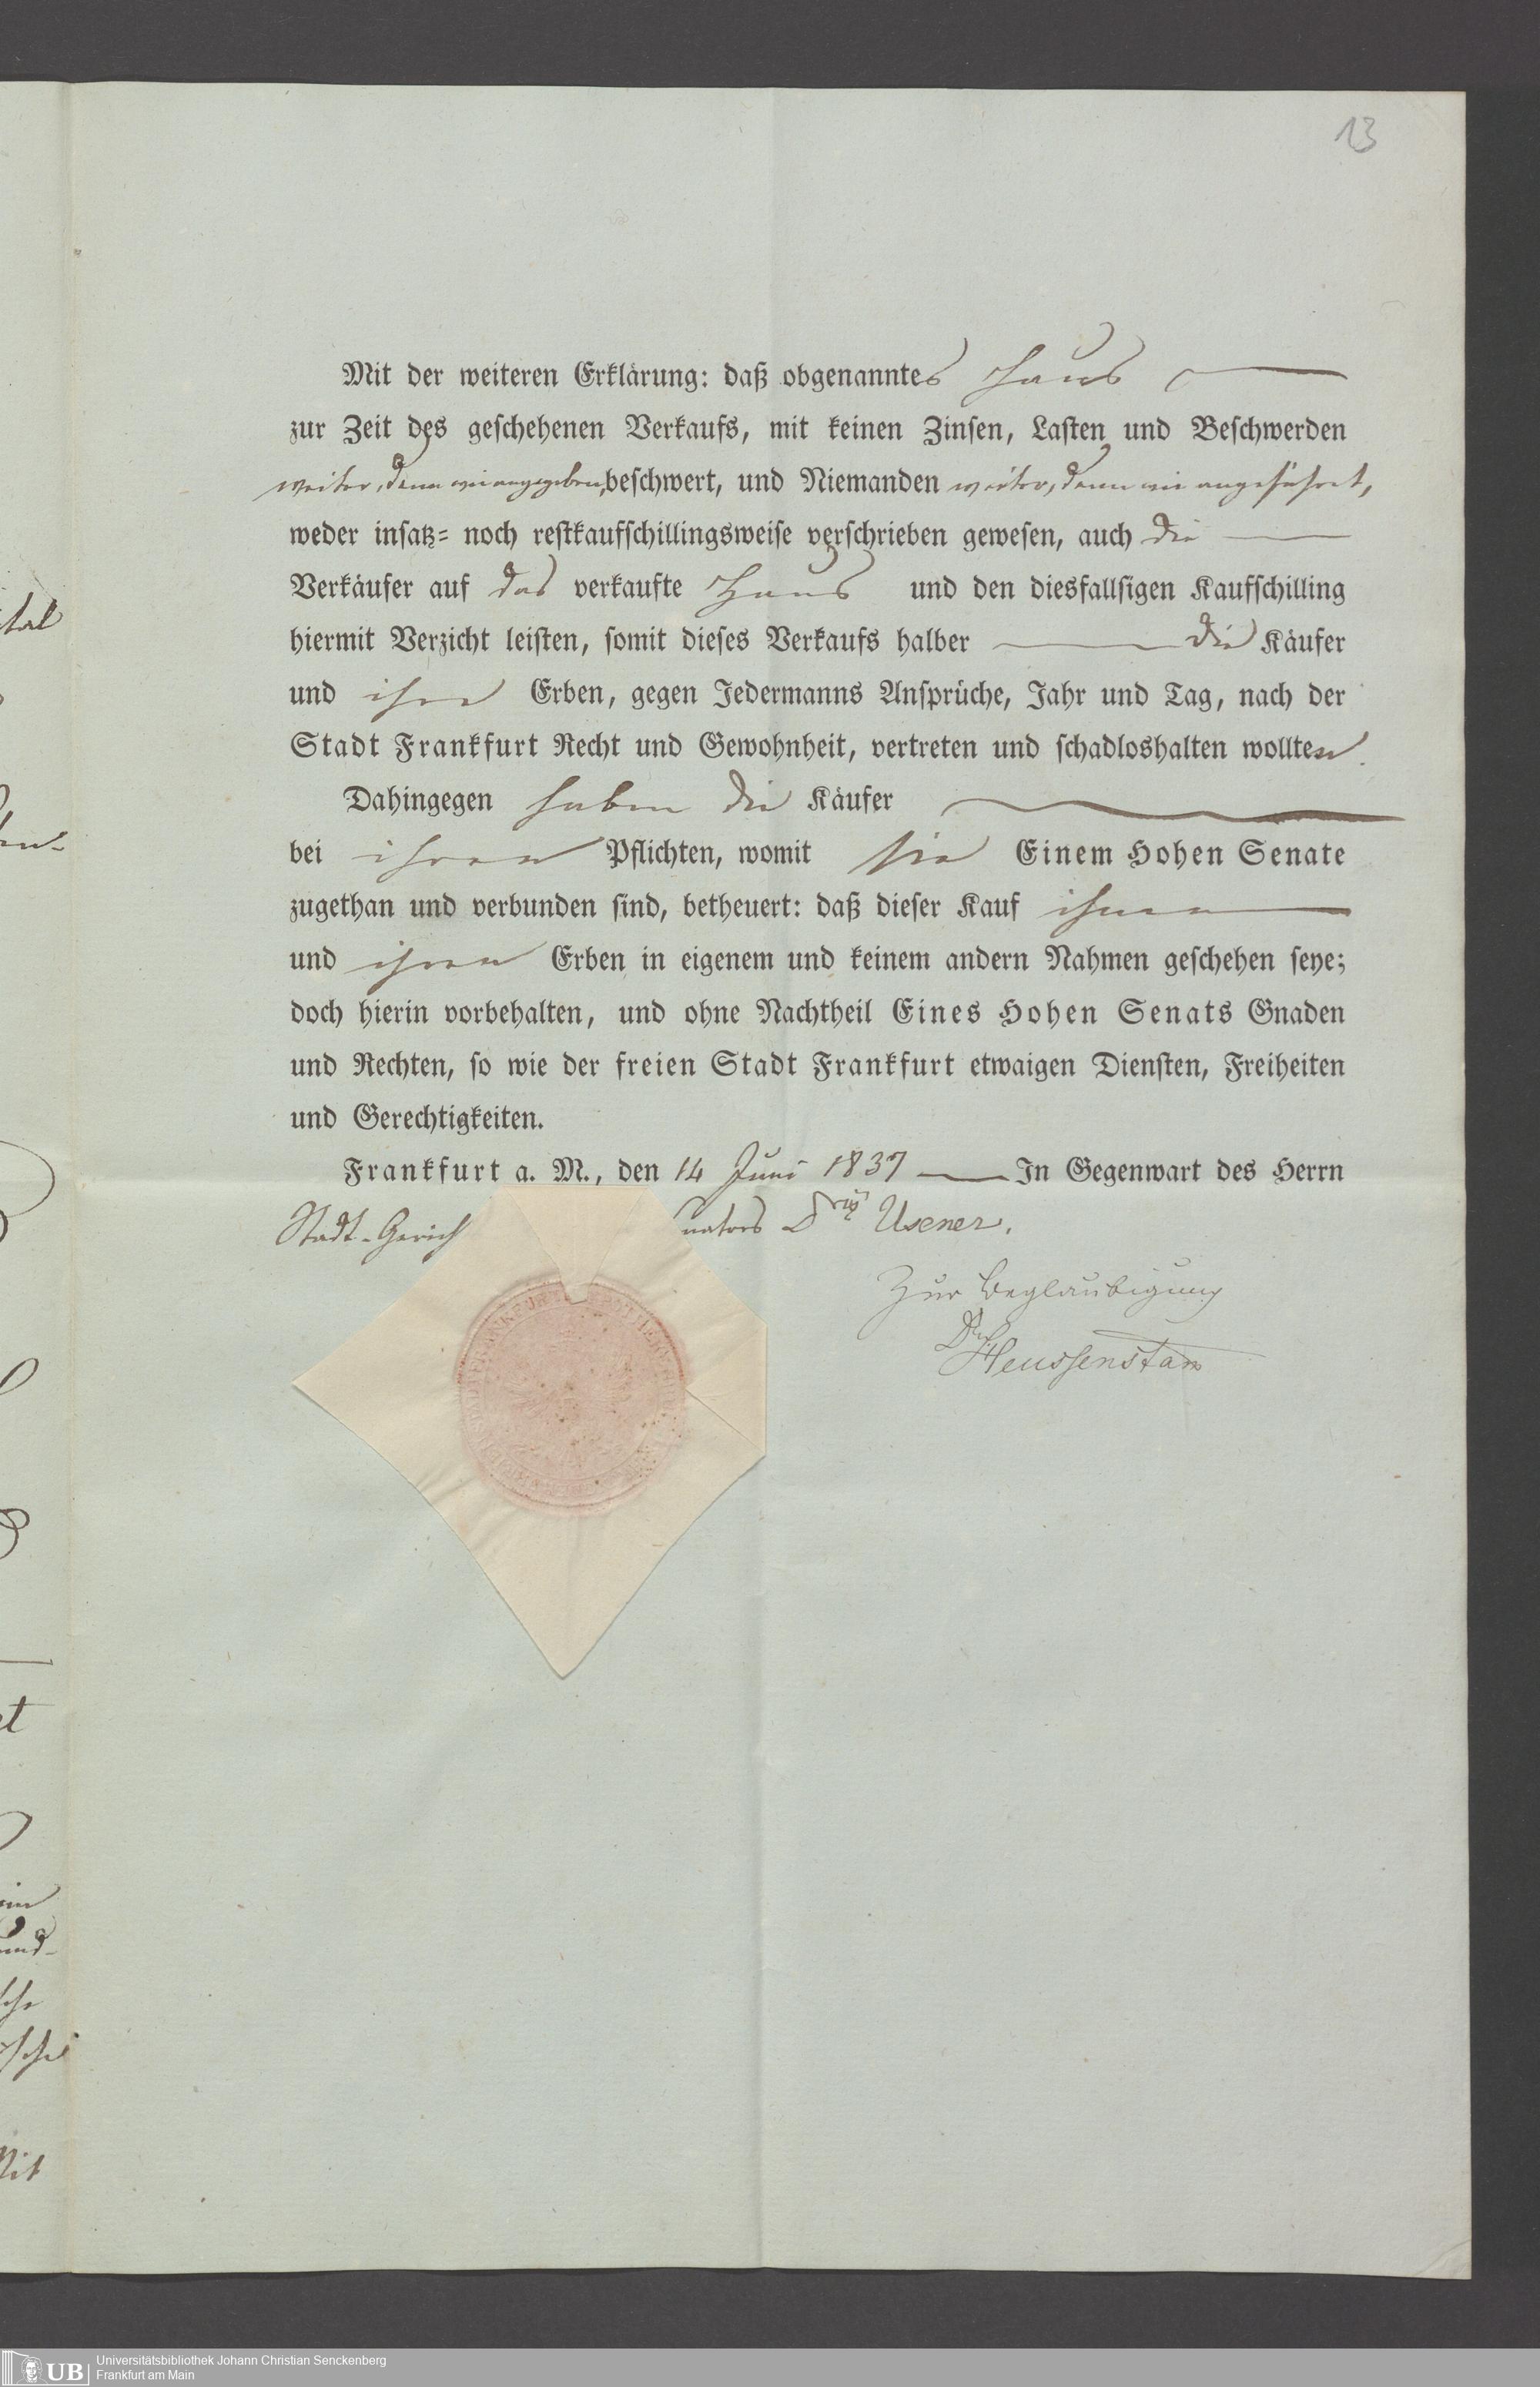 13
Mit der weiteren Erklärung: daß obgenanntes Haus
zur Zeit des geschehenen Verkaufs, mit keinen Zinsen, Lasten und Beschwerden
weiter, denn wie angegeben, beschwert, und Niemanden weiter, denn wie angeführt,
weder insatz= noch restkaufschillingsweise verschrieben gewesen, auch die
Verkäufer auf das verkaufte Haus und den diesfallsigen Kaufschilling
hiermit Verzicht leisten, somit dieses Verkaufs halber die Käufer
und ihre Erben, gegen Jedermanns Ansprüche, Jahr und Tag, nach der
Stadt Frankfurt Recht und Gewohnheit, vertreten und schadloshalten wollten.
Dahingegen haben die Käufer
bei ihren Pflichten, womit sie Einem Hohen Senate
zugethan und verbunden sind, betheuert: daß dieser Kauf ihnen
und ihren Erben in eigenem und keinem andern Nahmen geschehen seye;
doch hierin vorbehalten, und ohne Nachtheil Eines Hohen Senats Gnaden
und Rechten, so wie der freien Stadt Frankfurt etwaigen Diensten, Freiheiten
und Gerechtigkeiten.
Frankfurt a. M., den 14 Juni 1837 In Gegenwart des Herrn
Stadt-Gerich nators Dris Usener.
Zur Beglaubigung
Dr Heussenstam
UB Universitätsbibliothek Johann Christian Senckenberg
Frankfurt am Main